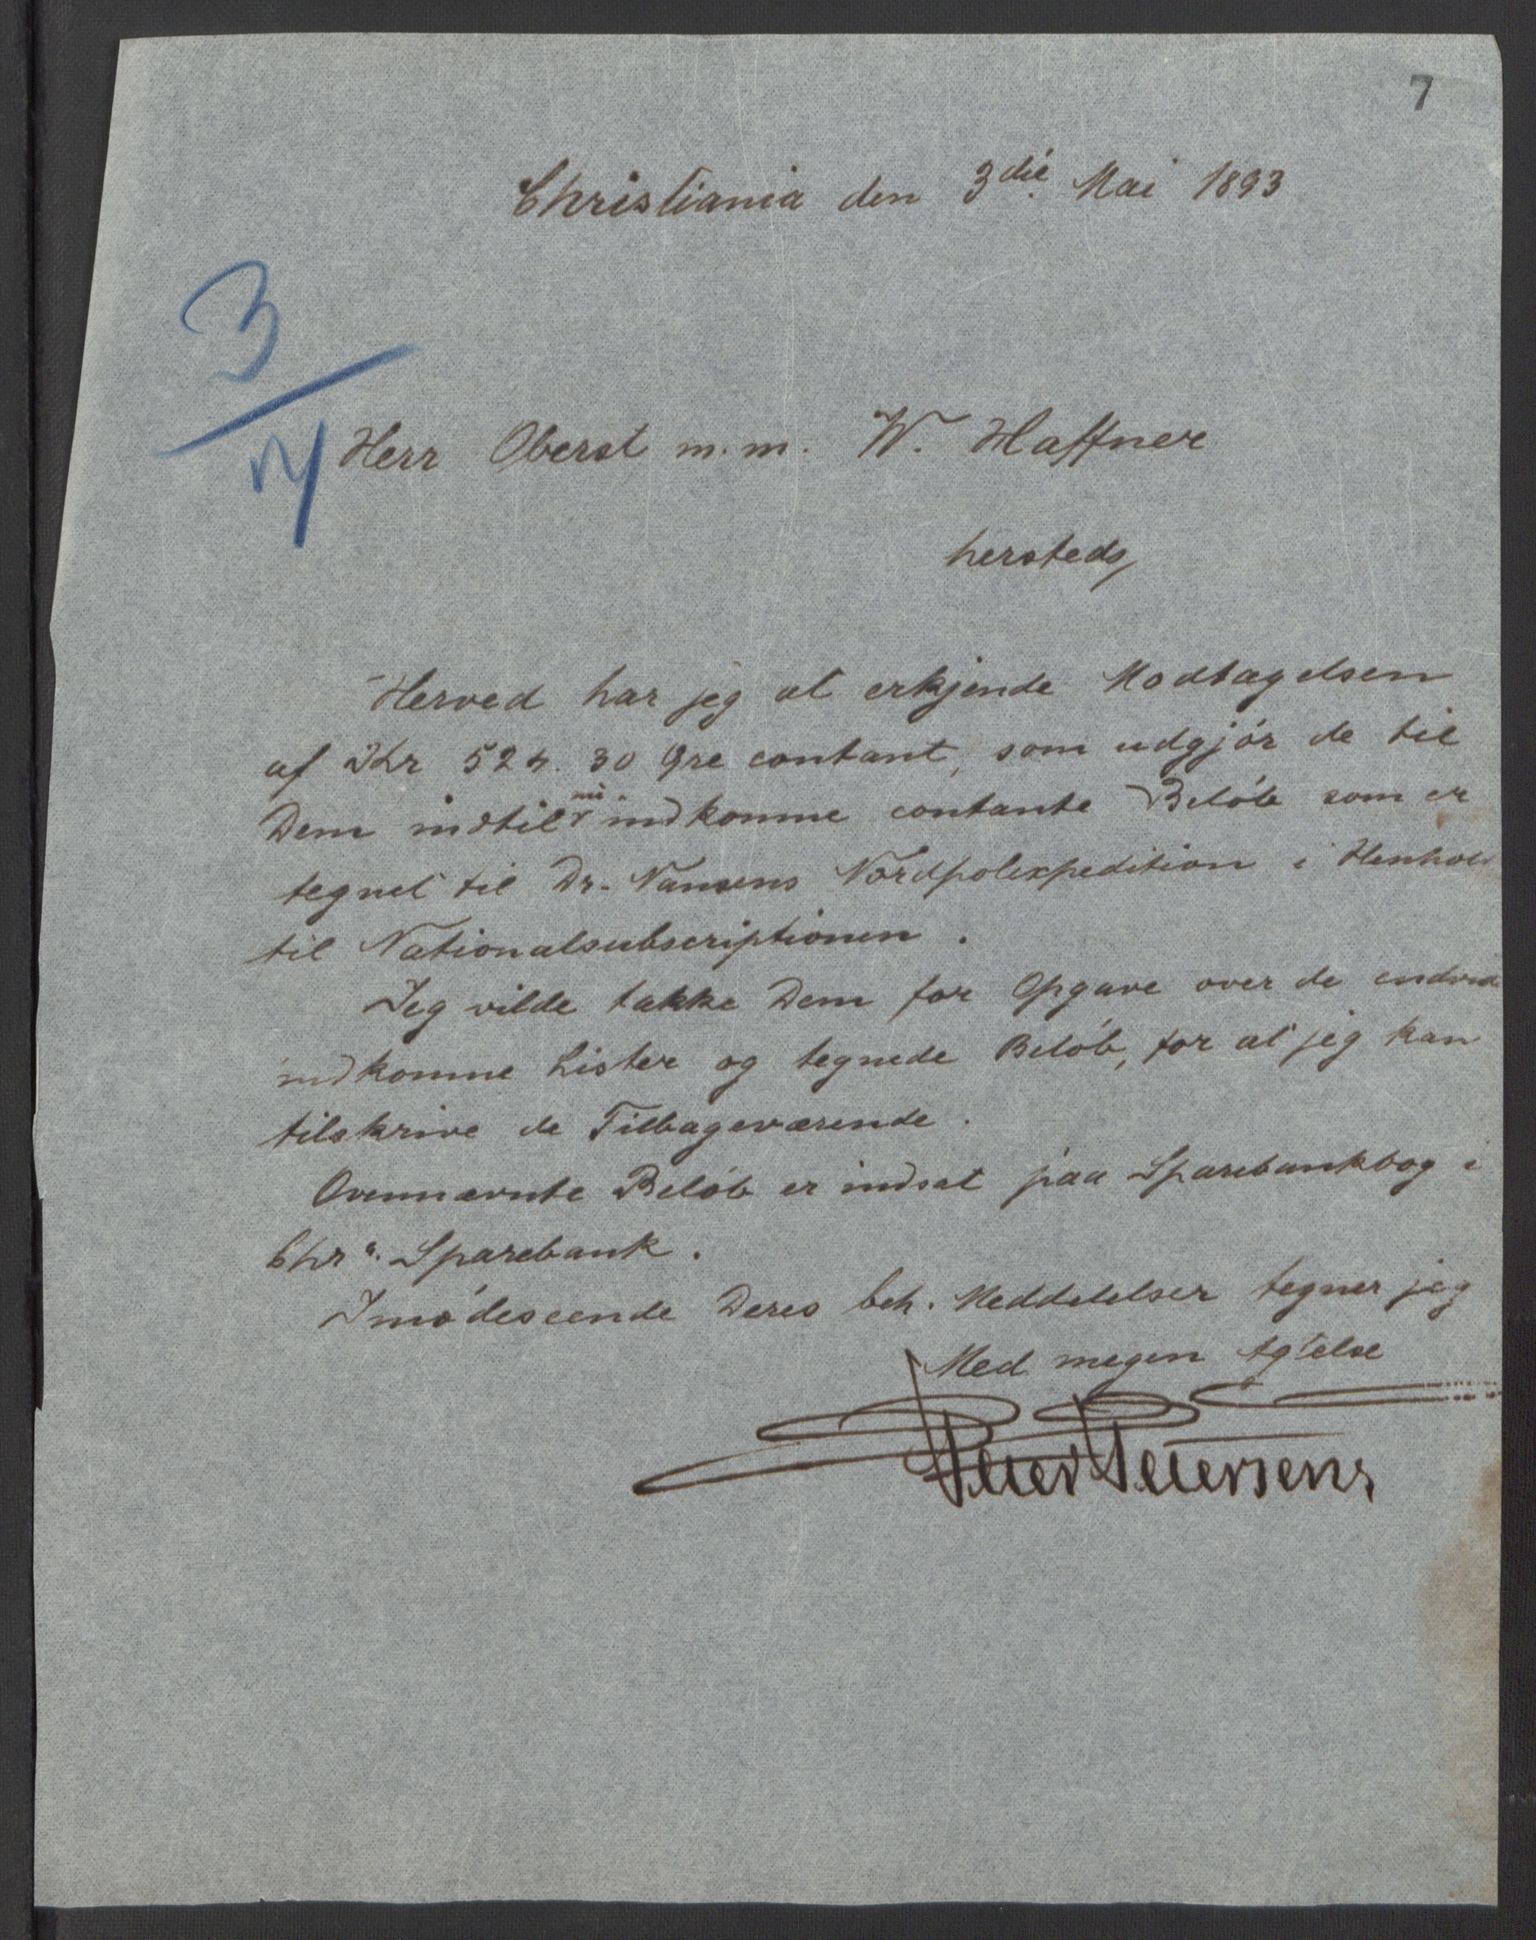 7
Christiania den 3die Mai 1893
3/V
Herr Oberst m.m. W. Haffner
hersteds,
Herved har jeg at erkjende Modtagelsen
af Kr 524. 30 Øre contant, som udgjór de til
Dem indtil nu indkomne contante Belób som er
tegnet til Dr. Nansens Nordpolexpedition i Henhold
til Nationalsubscriptionen.
Jeg vilde takke Dem for Opgave over de
indkomne Lister og tegnede Belób, for at jeg kan
tilskrive de Tilbageværende.
Ovennævnte Belób er indsat paa Sparebankbog i
Chra. Sparebank.
Imódeseende Deres beh. Meddelelser tegner jeg
Med megen Agtelse
Peter Petersens